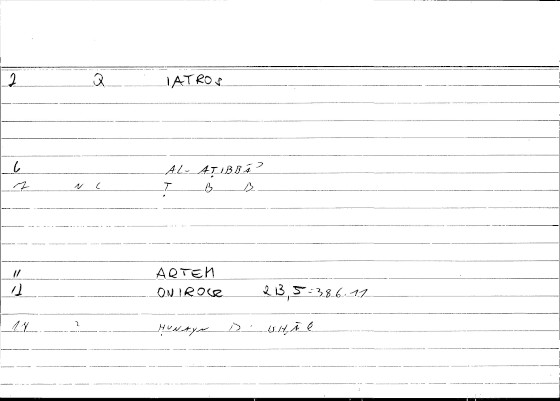 2 Q IATROS
6 AL-AṬIBBĀʾ
7 N C Ṭ B B
11 ARTEM
12 ONIROCR 213,5=386.11
14 ? ḤUNAYN B.